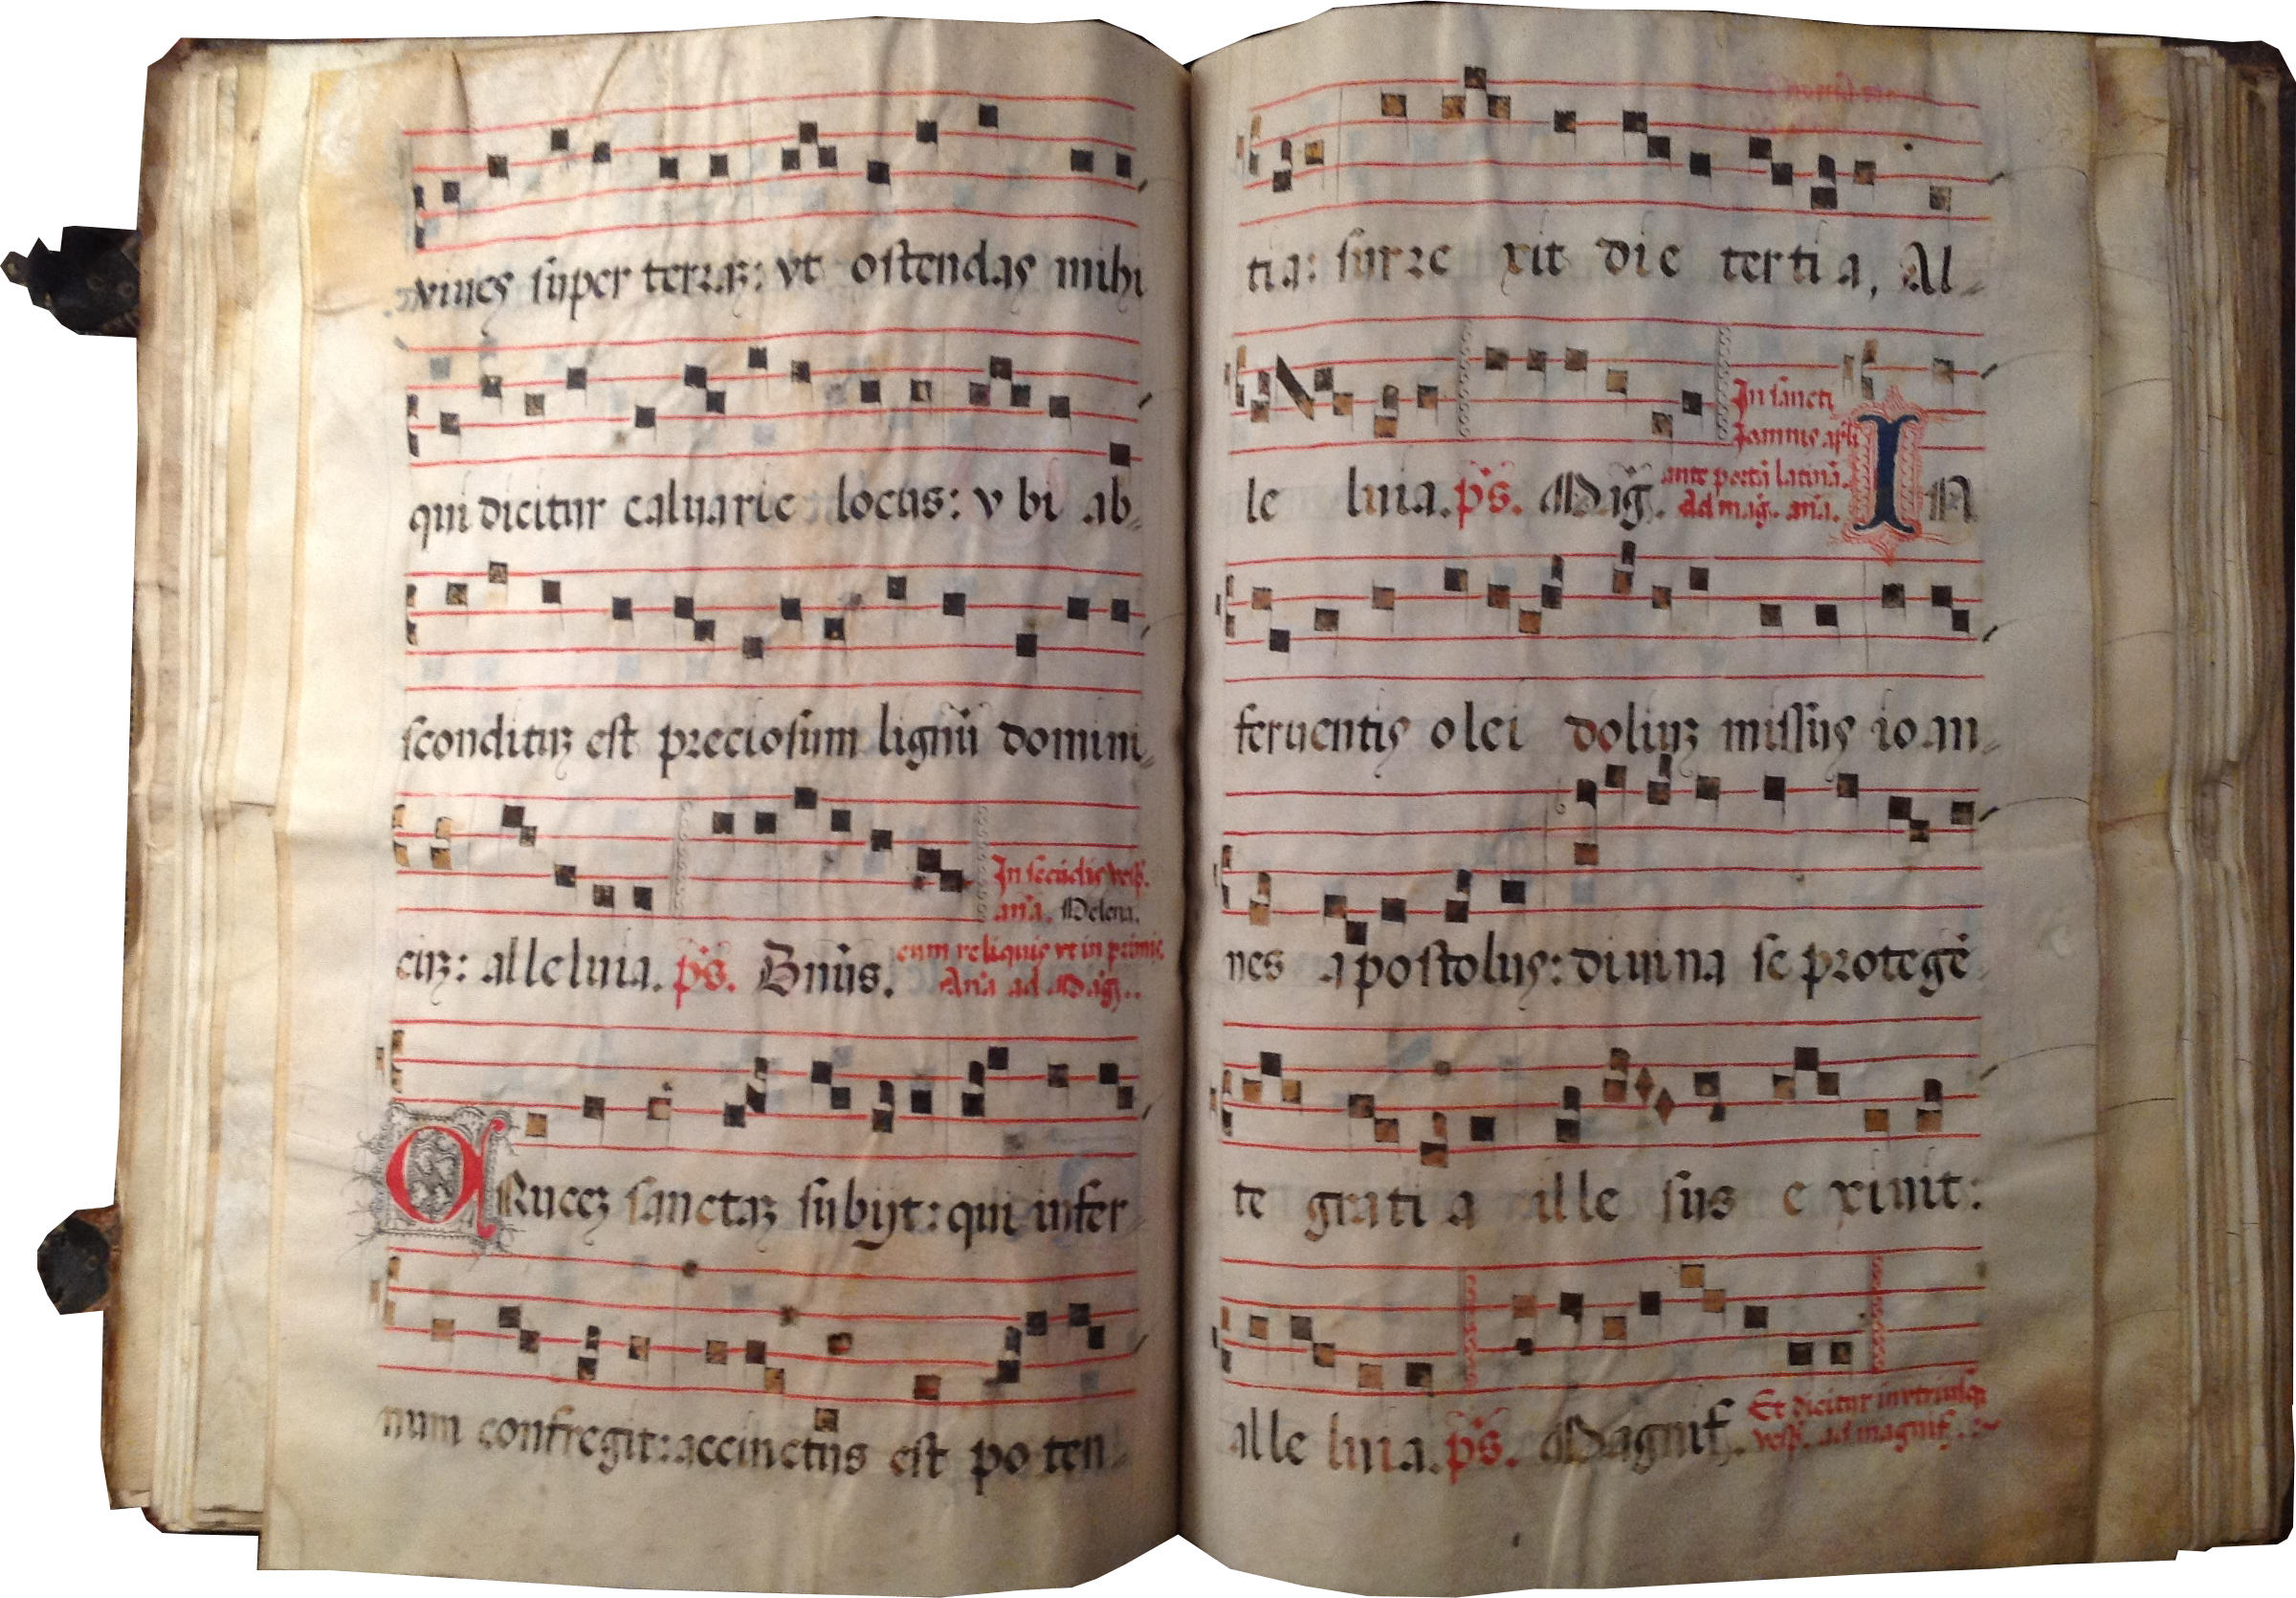 viues super terraz: vt ostendas mihi
qui dicitur caluarie locus: v bi ab
scondituz est preciosum lignū domini
cuz: alleluia. ps. Bnūs.
In secūdis vesp̄.
an̄a. Helena.
cum reliquis vt in primis.
An̄a ad Maḡ.
CRucez sanctaz subijt: qui infer
num confregit: accinctus est po ten
tia: surre xit die tertia, Al
le luia. ps. Maḡ.
In sancti
Joannis apl̄i
ante portā latinā.
Ad maḡ. an̄a.
IN
feruentis olei doliuz missus ioan
nes apostolus: diuina se protegē
te gratia ille sus e xiuit:
alle luia. ps. Magnif.
Et dicitur in vtriusq;
vesp̄. ad magnif.